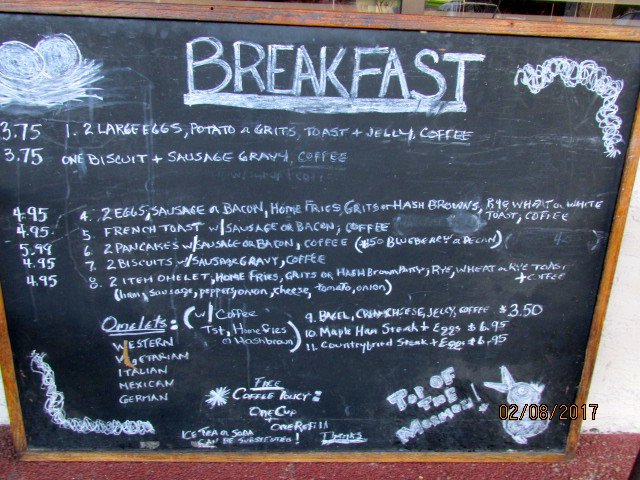 BREAKFAST
3.75 1. 2 LARGE EGGS, POTATO or GRITS, TOAST + JELLY, COFFEE
3.75 ONE BISCUIT + SAUSAGE GRAVY, COFFEE
4.95 4. 2 EGGS, SAUSAGE or BACON, HOME FRIES, GRITS or HASH BROWNS, RYE, WHEAT or WHITE
TOAST, COFFEE
4.95 5. FRENCH TOAST W/ SAUSAGE or BACON, COFFEE
5.99 6. 2 PANCAKES W/ SAUSAGE or BACON, COFFEE ($.50 BLUEBERRY or PECAN)
4.95 7. 2 BISCUITS W/ SAUSAGE GRAVY, COFFEE
4.95 8. 2 ITEM OMELET, HOME FRIES, GRITS or HASH BROWN PATTY, RYE, WHEAT or RYE TOAST
+ COFFEE
(ham, sausage, peppers, onion, cheese, tomato, onion)
Omelets: (W/ Coffee
Tst, Home fries
or Hashbrown)
WESTERN
VEGETARIAN
ITALIAN
MEXICAN
GERMAN
9. BAGEL, CREAM CHEESE, JELLY, COFFEE $3.50
10. Maple Ham Steak + Eggs $6.95
11. Country Fried Steak + Eggs $6.95
FREE
COFFEE POLICY:
ONE CUP
ONE REFILL
ICE TEA or SODA
CAN BE SUBSTITUTED! Thanks
TOP OF
THE
MORNING!
02/06/2017